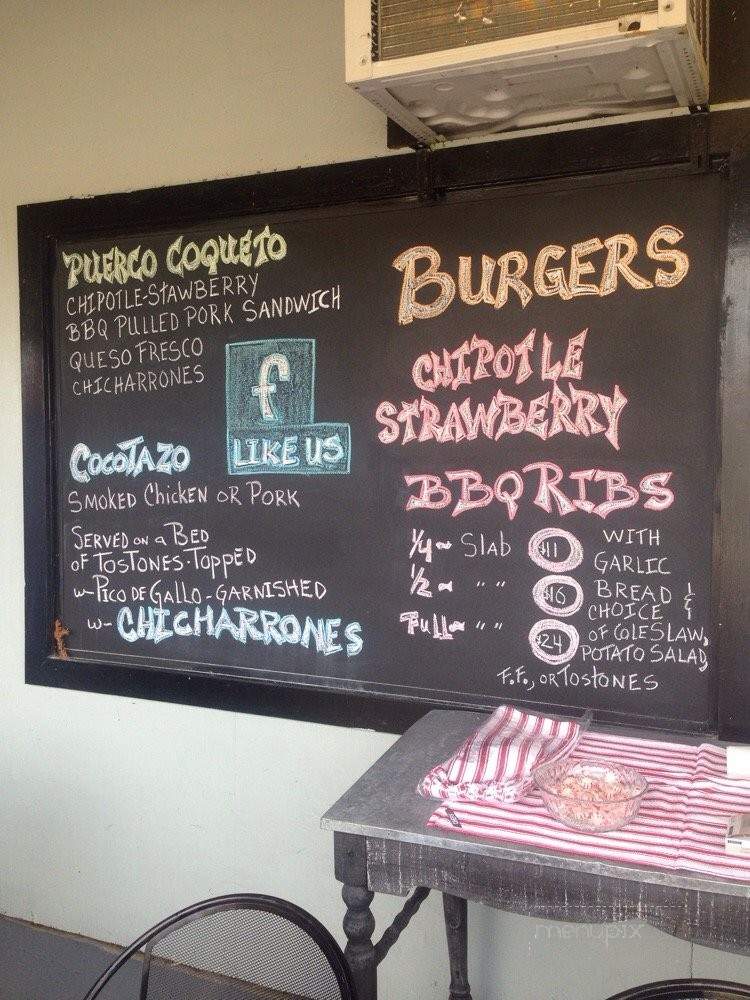 PUERCO COQUETO
CHIPOTLE-STAWBERRY
BBQ PULLED PORK SANDWICH
QUESO FRESCO
CHICHARRONES
f
LIKE US
COCOTAZO
SMOKED CHICKEN OR PORK
SERVED ON A BED
OF TOSTONES-TOPPED
w- PICO DE GALLO - GARNISHED
w- CHICHARRONES
BURGERS
CHIPOTLE
STRAWBERRY
BBQ RIBS
1/4 ~ SLAB $11 WITH
GARLIC
1/2 ~ " " $16 BREAD &
CHOICE
FULL ~ " " $24 OF COLESLAW,
POTATO SALAD,
F.F., OR TOSTONES
menupix